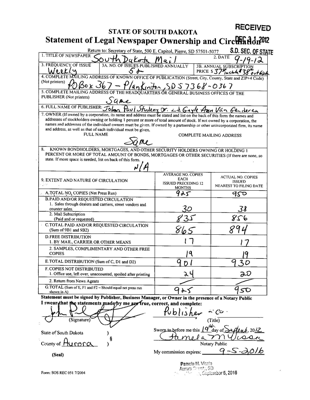 RECEIVED
STATE OF SOUTH DAKOTA
Statement of Legal Newspaper Ownership and Circulation
S.D. SEC. OF STATE
Return to: Secretary of State, 500 E. Capitol, Pierre, SD 57501-5077
1. TITLE OF NEWSPAPER South Dakota Mail
2. DATE 9-19-12
3. FREQUENCY OF ISSUE Weekly
3A. NO. OF ISSUES PUBLISHED ANNUALLY
3B. ANNUAL SUBSCRIPTION PRICE $
4. COMPLETE MAILING ADDRESS OF KNOWN OFFICE OF PUBLICATION (Street, City, County, State and ZIP+4 Code) (Not printers)
PO Box 367 - Plankinton, SD 57368-0367
5. COMPLETE MAILING ADDRESS OF THE HEADQUARTERS OF GENERAL BUSINESS OFFICES OF THE PUBLISHER (Not printers)
Same
6. FULL NAME OF PUBLISHER
7. OWNER (If owned by a corporation, its name and address must be stated and list on the back of this form the names and
addresses of stockholders owning or holding 1 percent or more of total amount of stock. If not owned by a corporation, the
names and addresses of the individual owners must be given. If owned by a partnership or other unincorporated firm, its name
and address, as well as that of each individual must be given.
FULL NAME COMPLETE MAILING ADDRESS
Same
8. KNOWN BONDHOLDERS, MORTGAGES, AND OTHER SECURITY HOLDERS OWNING OR HOLDING 1
PERCENT OR MORE OF TOTAL AMOUNT OF BONDS, MORTGAGES OR OTHER SECURITIES (If there are none, so
state. If more space is needed, list on back of this form.
N/A
9. EXTENT AND NATURE OF CIRCULATION
AVERAGE NO. COPIES EACH ISSUED PRECEDING 12 MONTHS
ACTUAL NO. COPIES ISSUED NEAREST TO FILING DATE
A. TOTAL NO. COPIES (Net Press Run) 925 950
B. PAID AND/OR REQUESTED CIRCULATION
1. Sales through dealers and carriers, street vendors and counter sales. 30 38
2. Mail Subscription (Paid and/or requested) 835 856
C. TOTAL PAID AND/OR REQUESTED CIRCULATION (Sum of 9B1 and 9B2) 865 894
D. FREE DISTRIBUTION
1. BY MAIL, CARRIER OR OTHER MEANS 17 17
2. SAMPLES, COMPLIMENTARY AND OTHER FREE COPIES 19 19
E. TOTAL DISTRIBUTION (Sum of C, D1 and D2) 901 930
F. COPIES NOT DISTRIBUTED
1. Office use, left over, unaccounted, spoiled after printing 24 20
2. Return from News Agents
G. TOTAL (Sum of E, F1 and F2 - Should equal net press run shown in A) 925 950
Statement must be signed by Publisher, Business Manager, or Owner in the presence of a Notary Public
I swear that the statements made by me are true, correct, and complete:
Publisher - co
(Signature) (Title)
State of South Dakota )
County of Aurora )
Sworn to before me this 19th day of Sept, 2012
Notary Public
(Seal)
My commission expires: 9-5-2016
Form: SOS REC 051 7/2004